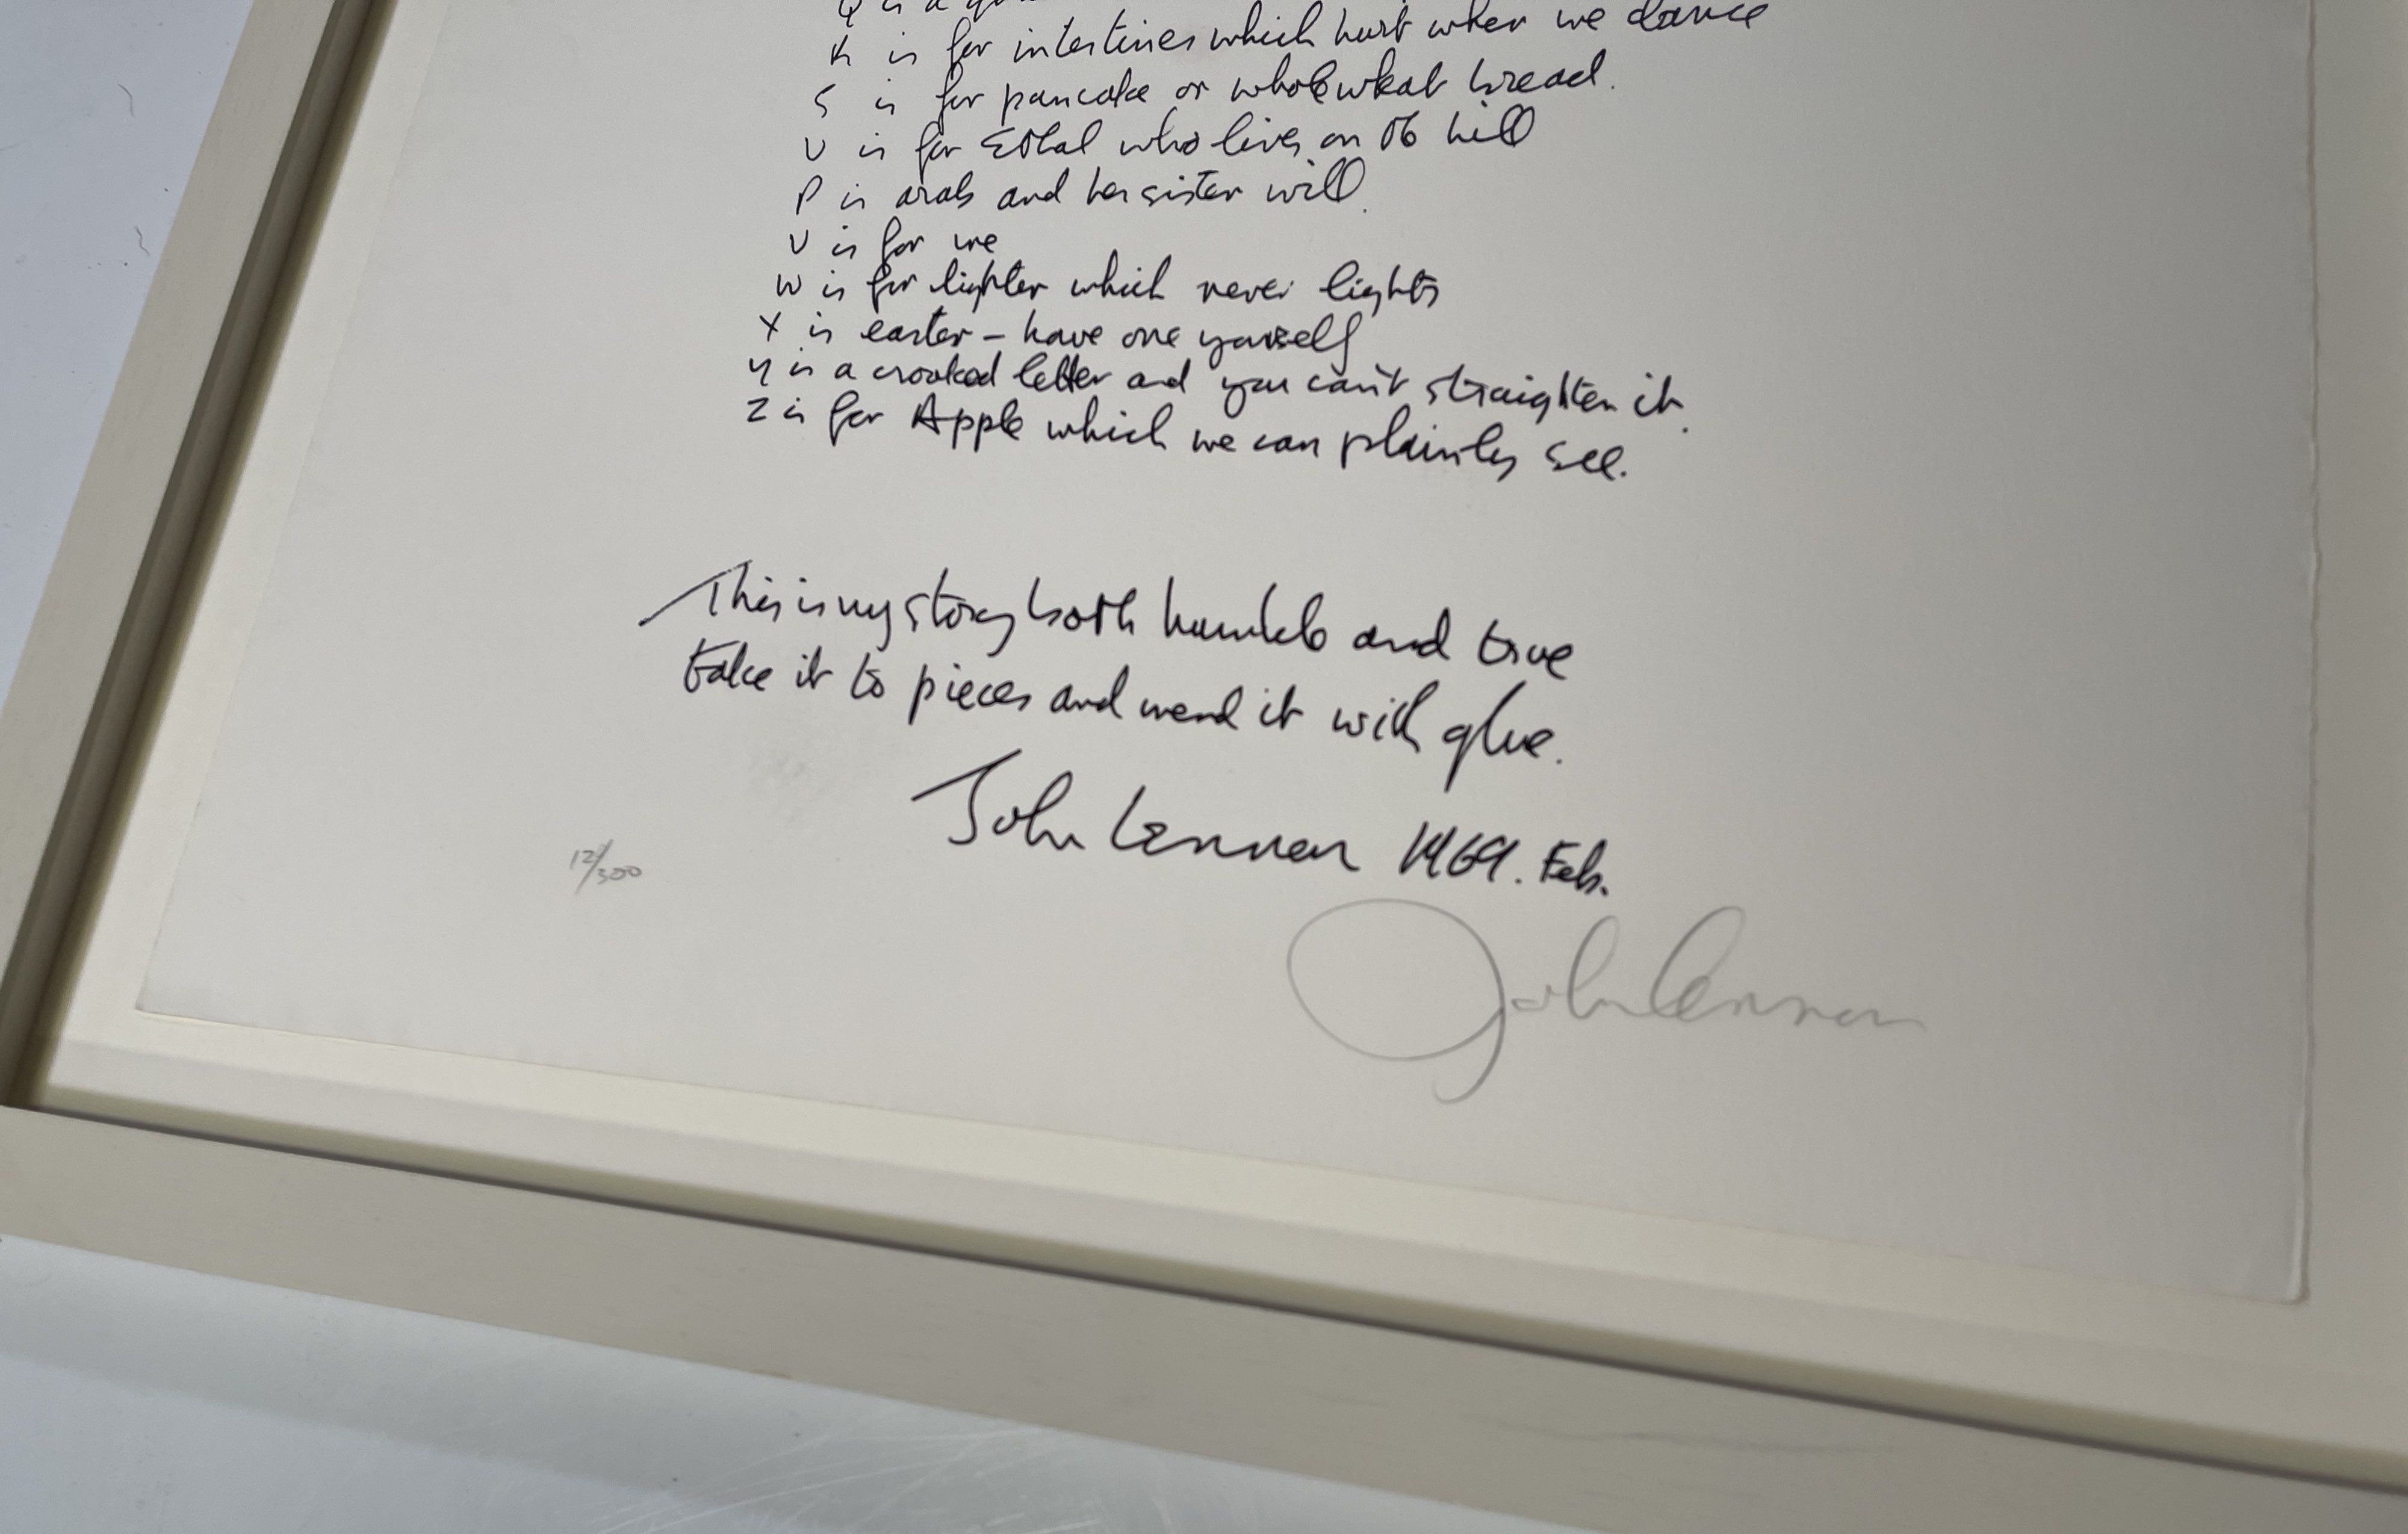 Q is a
R is for intestines which hurt when we dance
S is for pancake or wholewheat bread.
U is for Ethal who lives on the hill
P is arab and her sister will.
V is for we
W is for lighter which never lights
X is easter – have one yourself
Y is a crooked letter and you can't straighten it.
Z is for Apple which we can plainly see.
This is my story both humble and true
take it to pieces and mend it with glue.
John Lennon 1969. Feb.
12/300
John Lennon